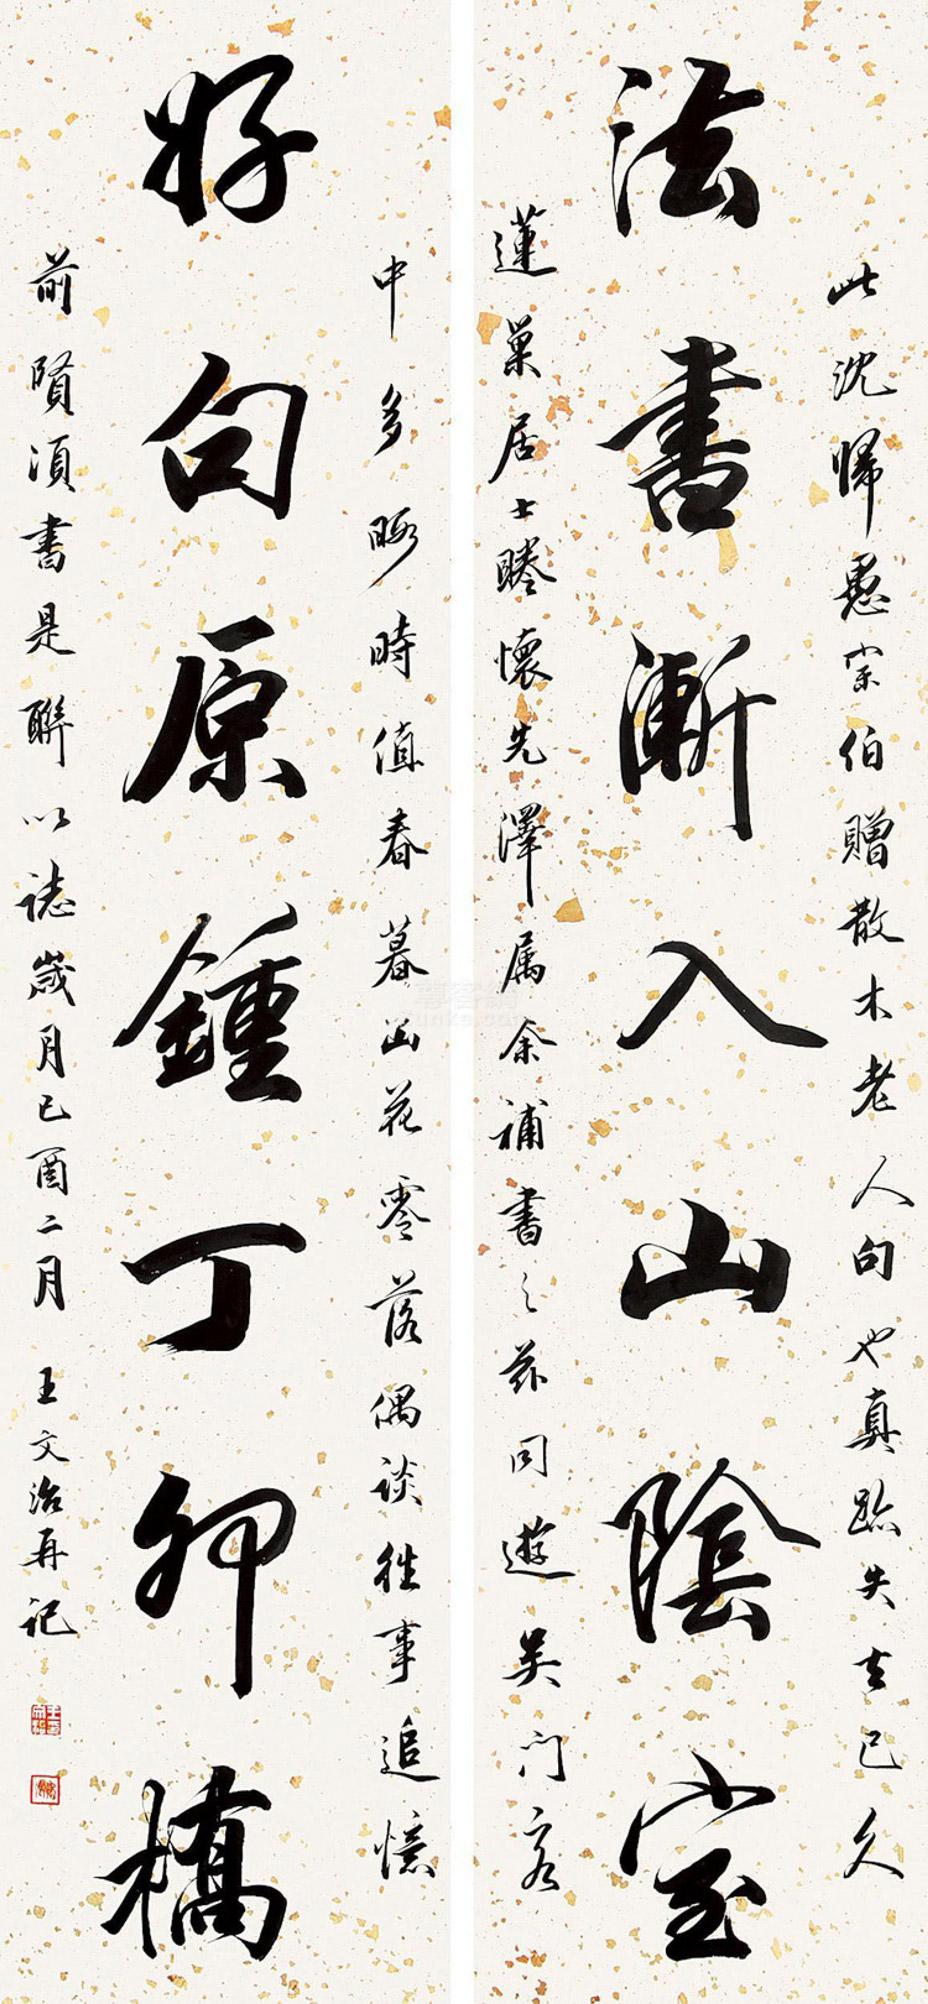 法書漸入山陰室
此沈歸愚宗伯贈散木老人句也真跡失去已久
蓮巢居士睠懷先澤属余補書之茲同遊吴门客
中多暇時值春暮山花零落偶谈往事追憶
好句原鍾丁卯橋
前賢須書是聯以誌歲月己酉二月 王文治再记